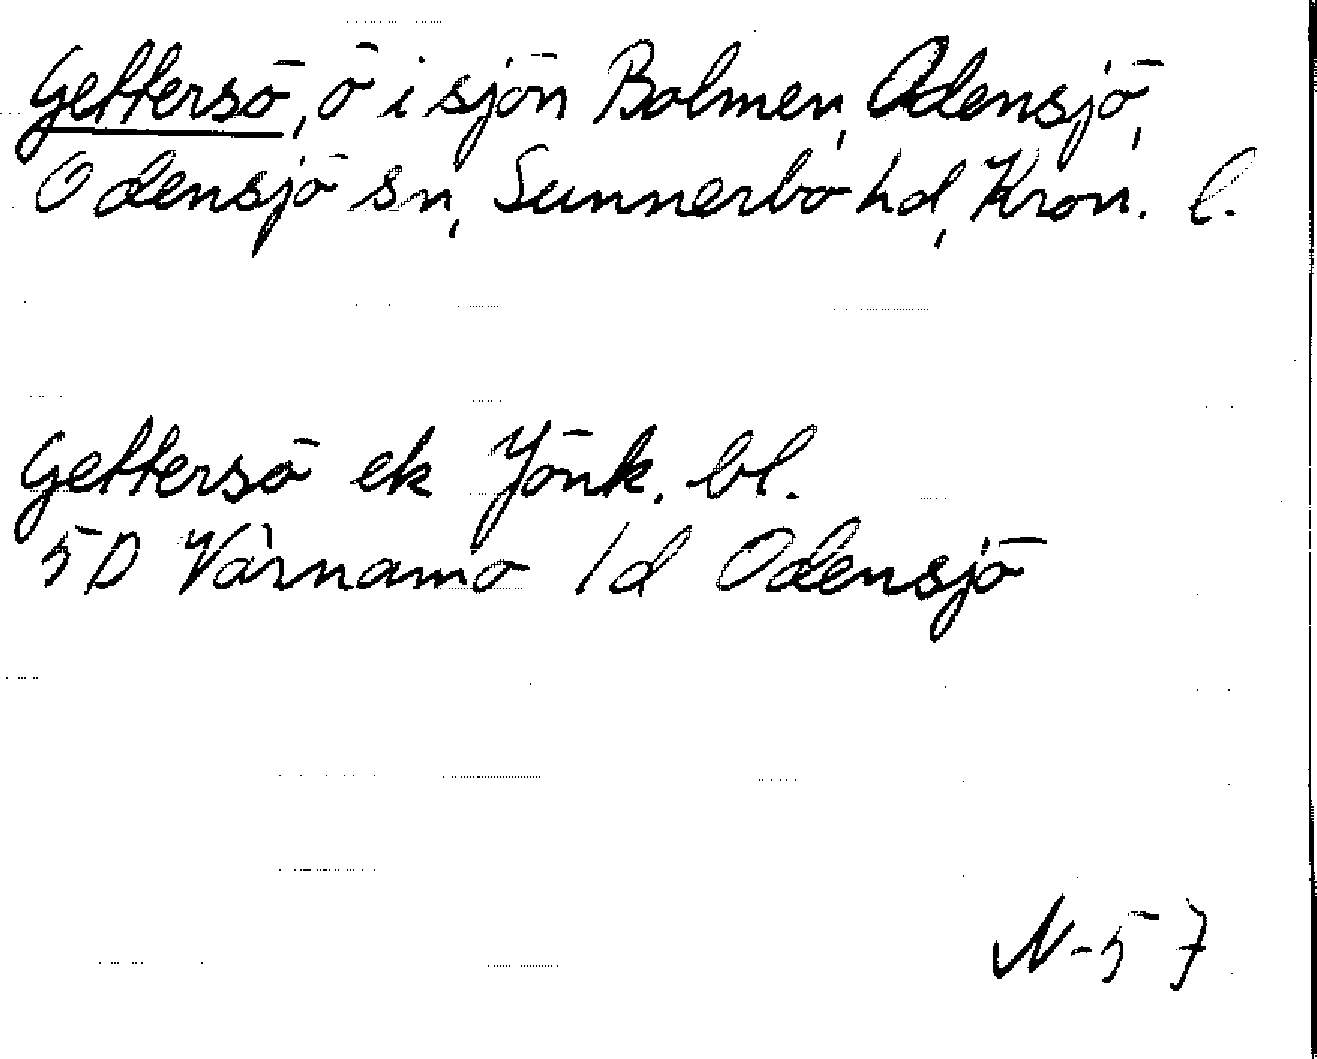 Gettersö, ö i sjön Bolmen, Odensjö,
Odensjö sn, Sunnerbo hd, Kron. l.
Gettersö ek Jönk. bl.
5D Värnamo 1d Odensjö
N-57